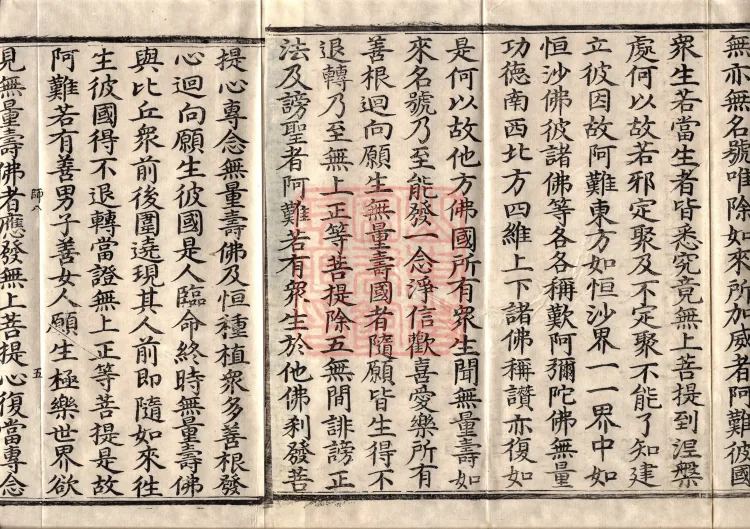 無亦無名號唯除如來所加威者阿難彼國
衆生若當生者皆悉究竟無上菩提到涅槃
處何以故若邪定聚及不定聚不能了知建
立彼因故阿難東方如恒沙界一一界中如
恒沙佛彼諸佛等各各稱歎阿彌陀佛無量
功德南西北方四維上下諸佛稱讚亦復如
是何以故他方佛國所有衆生聞無量壽如
來名號乃至能發一念淨信歡喜愛樂所有
善根迴向願生無量壽國者隨願皆生得不
退轉乃至無上正等菩提除五無間誹謗正
法及謗聖者阿難若有衆生於他佛刹發菩
提心專念無量壽佛及恒種植衆多善根發
心迴向願生彼國是人臨命終時無量壽佛
與比丘衆前後圍遶現其人前即隨如來往
生彼國得不退轉當證無上正等菩提是故
阿難若有善男子善女人願生極樂世界欲
師八 五
見無量壽佛者應發無上菩提心復當專念